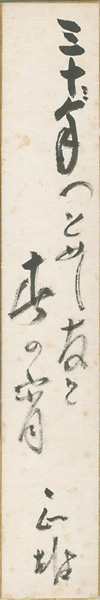 三十年つとめし友と
春の宵
正雄